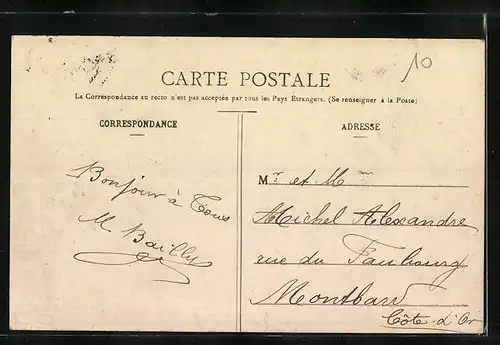 10
CARTE POSTALE
La Correspondance au recto n'est pas acceptée par tous les Pays Étrangers. (Se renseigner à la Poste)
CORRESPONDANCE
Bonjour à Tous
M Bailly
ADRESSE
Mr et Mme
Michel Alexandre
rue du Faubourg
Montbard
Côte-d'Or